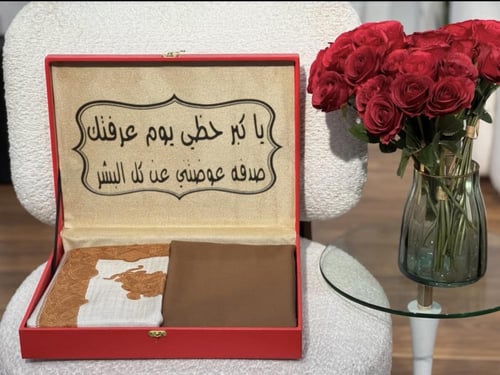 يا كبر حظي يوم عرفتك
صدفه عوضتني عن كل البشر